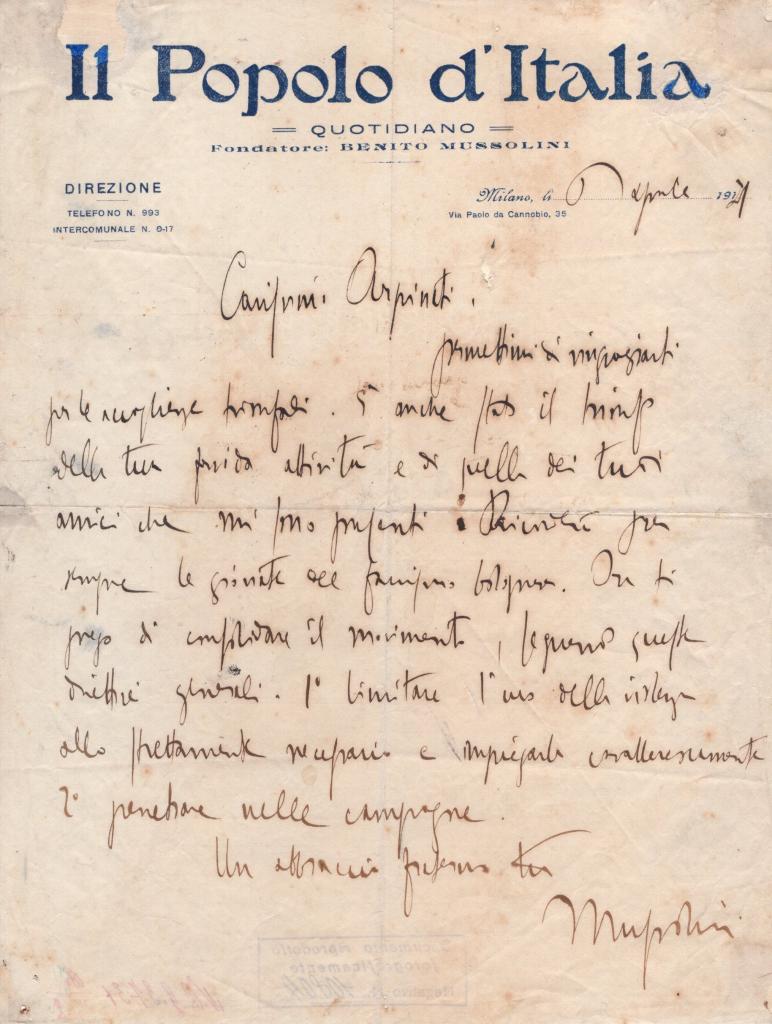 Il Popolo d'Italia
QUOTIDIANO
Fondatore: BENITO MUSSOLINI
DIREZIONE
TELEFONO N. 993
INTERCOMUNALE N. 0-17
Milano, li 6 aprile 1921
Via Paolo da Cannobio, 35
Carissimo Arpinati,
permettimi di ringraziarti
per le accoglienze trionfali. È anche stato il trionfo
della tua fervida attività e di quella dei tuoi
amici che mi sono presenti. Ricorderò per
sempre le giornate del fascismo bolognese. Ora ti
prego di consolidare il movimento, seguendo queste
direttive generali. 1° limitare l'uso della violenza
allo strettamente necessario e impiegarla cavallerescamente
2° penetrare nelle campagne.
Un abbraccio fraterno tuo
Mussolini
Documento riprodotto
fotograficamente
Negativo N.